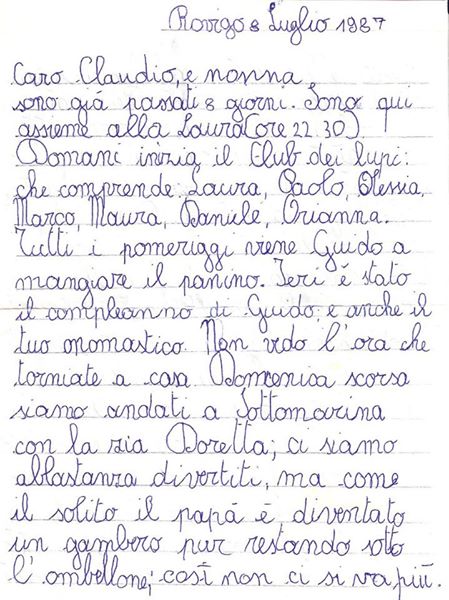 Rovigo 8 Luglio 1987
Caro Claudio, e nonna,
sono già passati 8 giorni. Sono qui
assieme alla Laura (ore 22.30).
Domani inizia il Club dei lupi:
che comprende Laura, Paolo, Alessia,
Marco, Maura, Daniele, Arianna.
Tutti i pomeriggi viene Guido a
mangiare il panino. Ieri è stato
il compleanno di Guido, e anche il
tuo onomastico. Non vedo l'ora che
torniate a casa. Domenica scorsa
siamo andati a Sottomarina
con la zia Doretta; ci siamo
abbastanza divertiti, ma come
il solito il papà è diventato
un gambero pur restando sotto
l'ombellone; così non ci si va più.